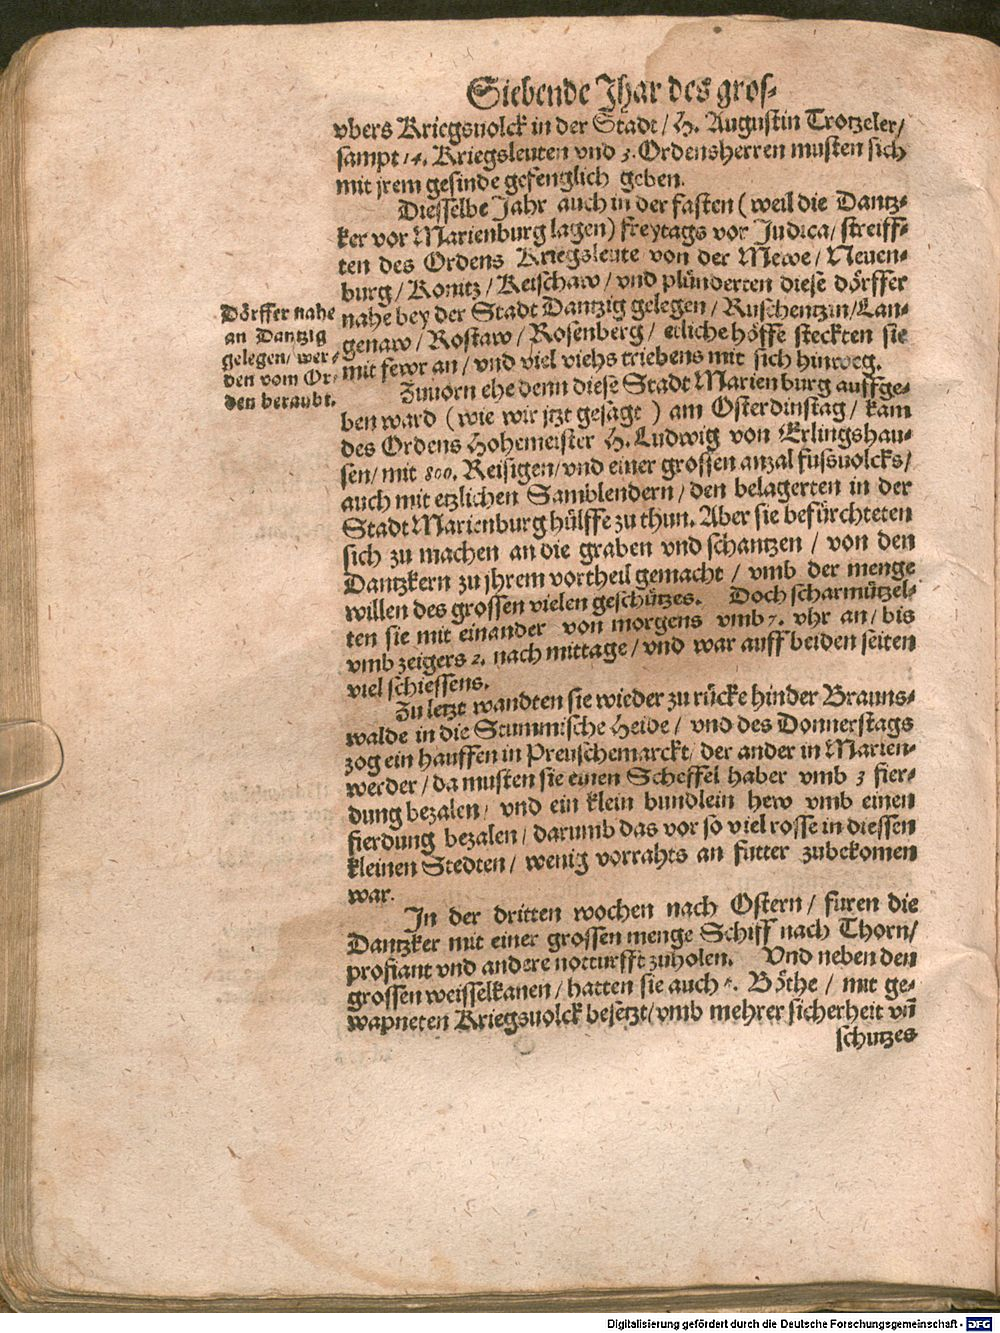 Siebende Jhar des gros-
vbers Kriegsuolck in der Stadt / H. Augustin Trotzeler /
sampt 14. Kriegsleuten vnd 3. Ordensherren musten sich
mit jrem gesinde gefenglich geben.
Diesselbe Jahr auch in der fasten ( weil die Dantz-
ker vor Marienburg lagen ) freytags vor Judica / streiff-
ten des Ordens Kriegsleute von der Mewe / Neuen-
burg / Konitz / Keischaw / vnd plünderten diese dörffer
nahe bey der Stadt Dantzig gelegen / Ruschentzin / Lan-
genaw / Rostaw / Rosenberg / etliche höffe steckten sie
mit fewr an / vnd viel viehs triebens mit sich hinweg.
Dörffer nahe
an Dantzig
gelegen / wer-
den vom Or-
den beraubt.
Zuuorn ehe denn diese Stadt Marienburg auffge-
ben ward ( wie wir jtzt gesagt ) am Osterdinstag / kam
des Ordens Hohemeister H. Ludwig von Erlingshau-
sen / mit 800. Reisigen / vnd einer grossen anzal fusuolcks /
auch mit etzlichen Samblendern / den belagerten in der
Stadt Marienburg hülffe zu thun. Aber sie befürchteten
sich zu machen an die graben vnd schantzen / von den
Dantzkern zu jhrem vortheil gemacht / vmb der menge
willen des grossen vielen geschützes. Doch scharmützel-
ten sie mit einander von morgens vmb 7. vhr an / bis
vmb zeigers 2. nach mittage / vnd war auff beiden seiten
viel schiessens.
Zu letzt wandten sie wieder zu rücke hinder Brauns-
walde in die Stummische Heide / vnd des Donnerstags
zog ein hauffen in Preuschemarckt / der ander in Marien-
werder / da musten sie einen Scheffel haber vmb 3 fier-
dung bezalen / vnd ein klein bundlein hew vmb einen
fierdung bezalen / darumb das vor so viel rosse in diessen
kleinen Stedten / wenig vorrahts an futter zubekomen
war.
In der dritten wochen nach Ostern / furen die
Dantzker mit einer grossen menge Schiff nach Thorn /
profiant vnd andere notturfft zuholen. Vnd neben den
grossen weisselkanen / hatten sie auch Böthe / mit ge-
wapneten Kriegsuolck besetzt / vmb mehrer sicherheit vn̄
schutzes
Digitalisierung gefördert durch die Deutsche Forschungsgemeinschaft - DFG